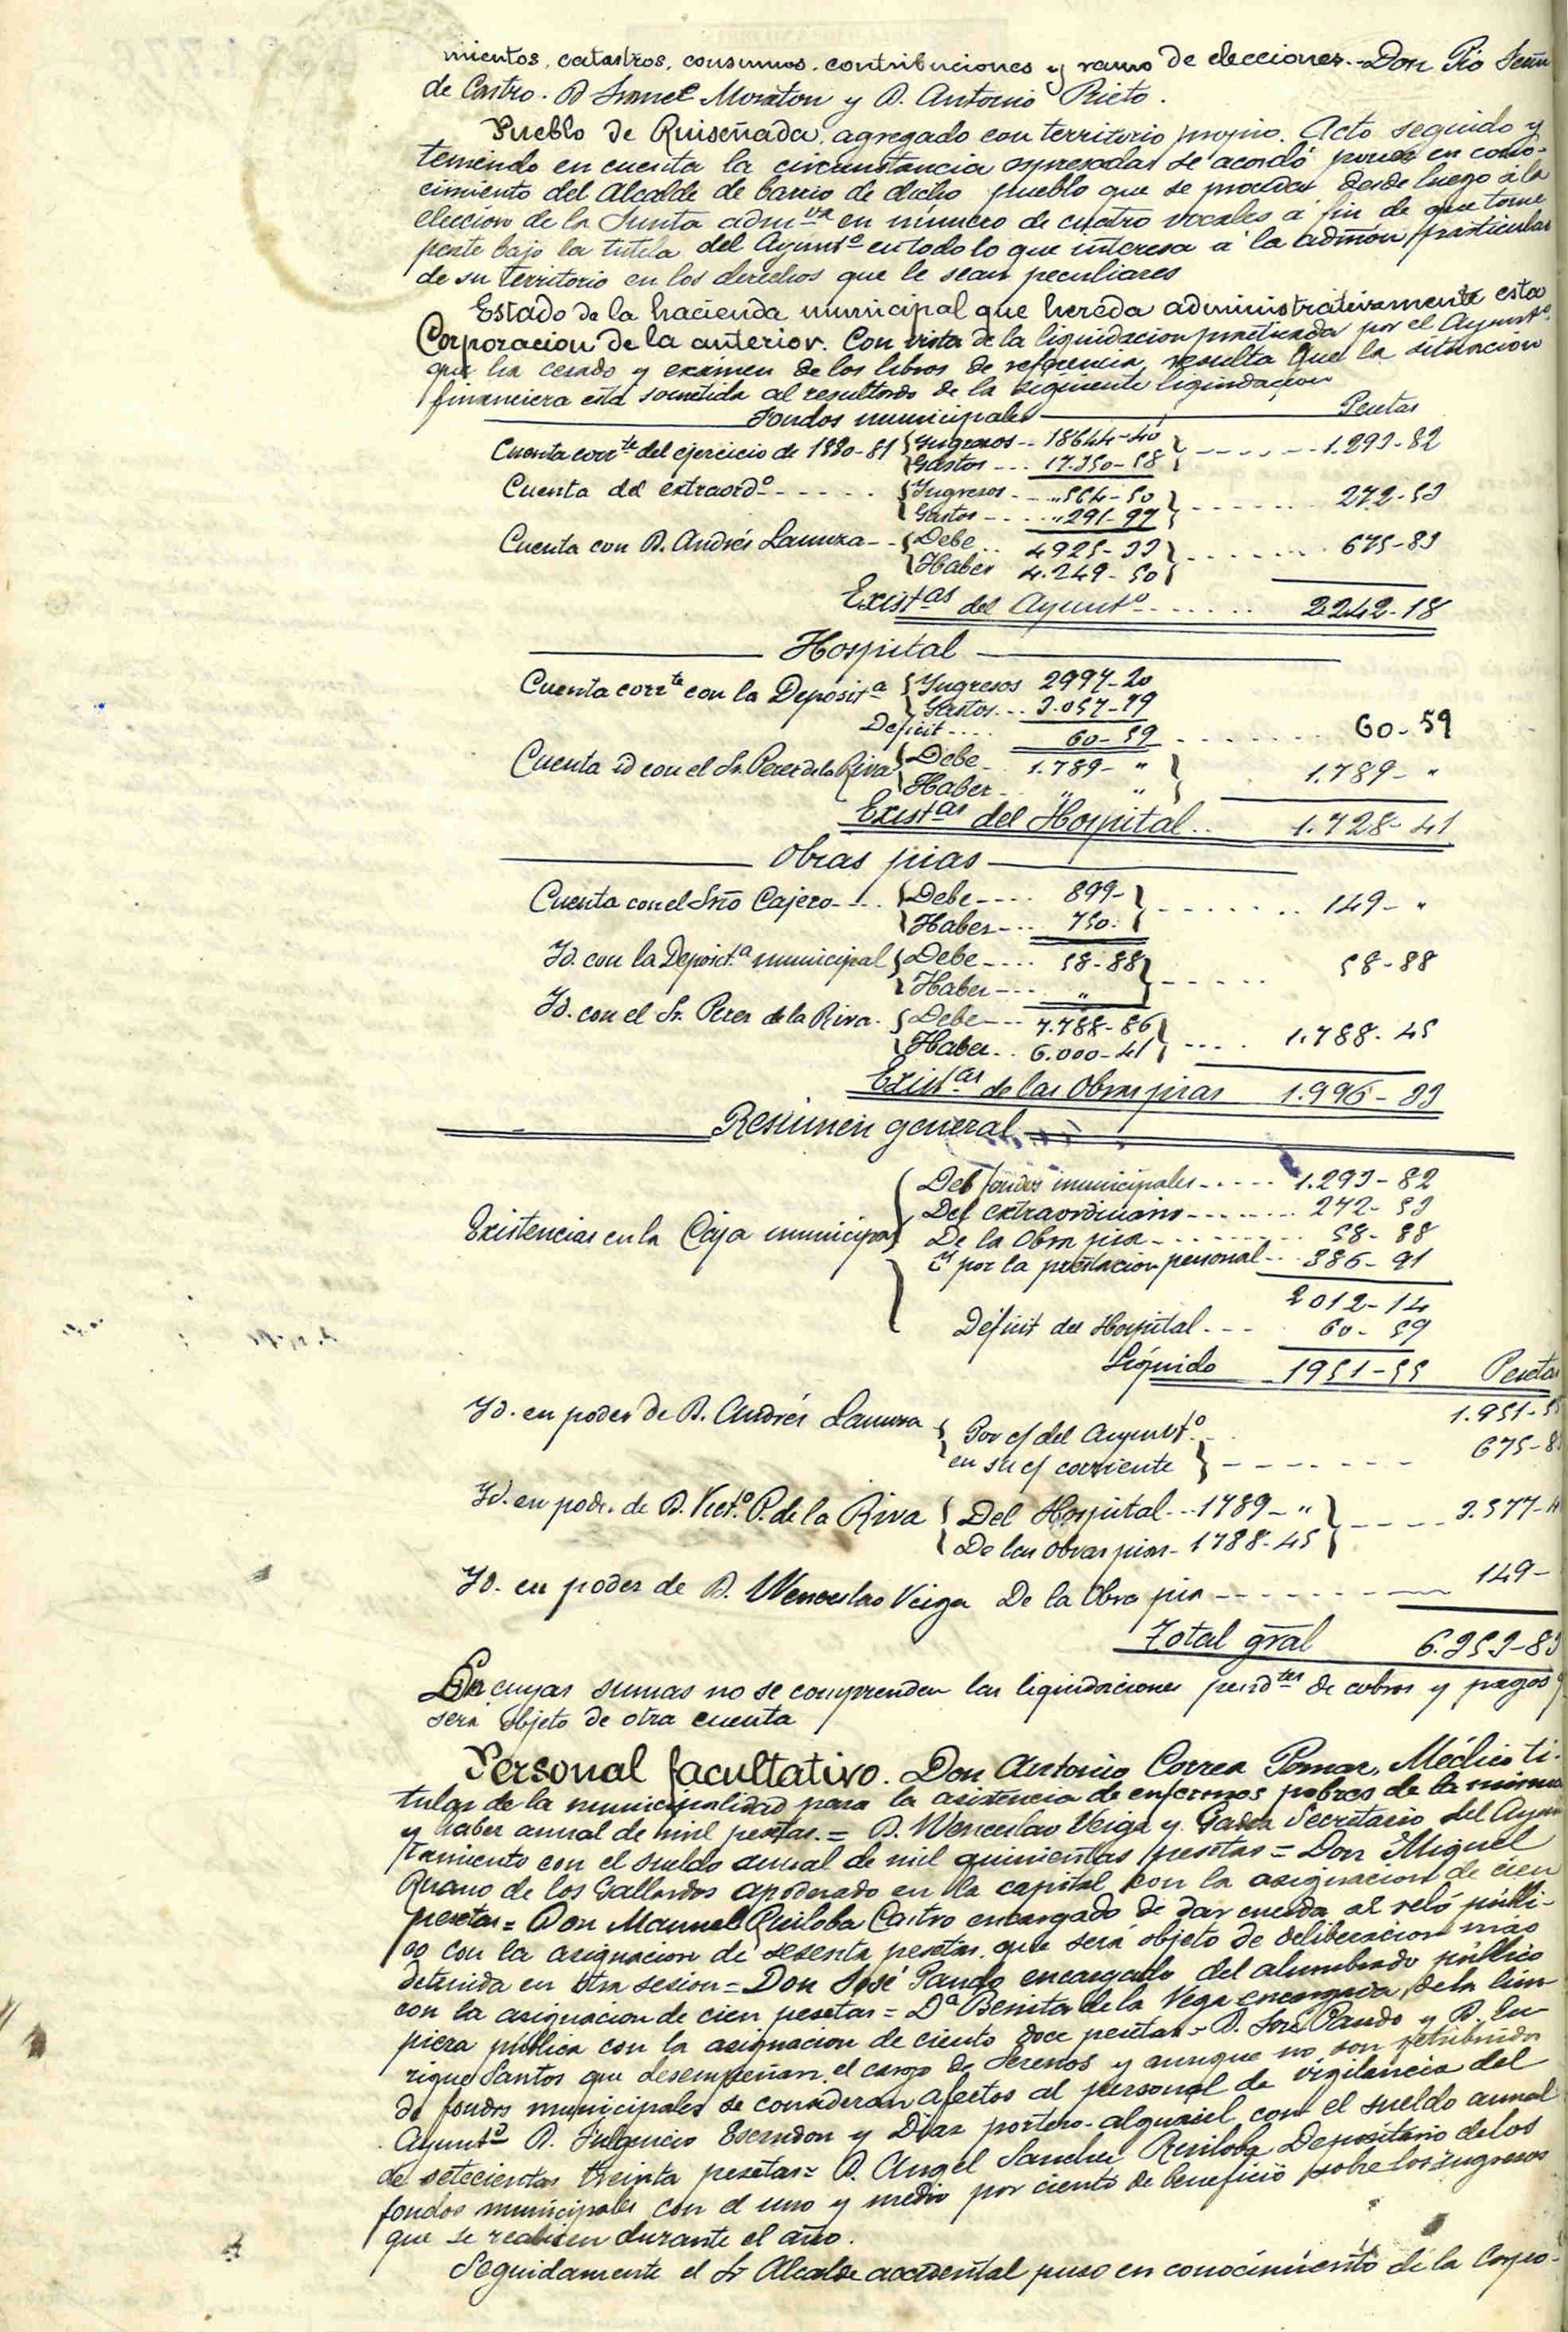 mientos, catastros, consumos, contribuciones y ramo de elecciones.- Don Pio
de Castro. D. Morton y D. Antonio Prieto.
Pueblo de Ruiseñada, agregado con territorio propio. Acto seguido y
teniendo en cuenta la circunstancia espresadas se acordó poner en cono-
cimiento del Alcalde de barrio de dicho pueblo que se proceda desde luego á la
eleccion de la Junta adm.va en número de cuatro vocales á fin de que tome
parte bajo la tutela del Ayunt.o en todo lo que interesa á la admon particular
de su territorio en los derechos que le sean peculiares
Estado de la hacienda municipal que hereda administrativamente esta
Corporacion de la anterior. Con vista de la liquidacion practicada por el Ayunt.o
que ha cesado y exámen de los libros de referencia, resulta que la situacion
financiera está sometida al resultado de la siguiente liquidacion
Fondos municipales Pesetas
Cuenta corr.te del ejercicio de 1880-81 { Ingresos -- 18644-40 } ------ 1.293-82
Gastos --- 17.350-58
Cuenta del extraord.o ------ { Ingresos --- " 564-50 } ------ 272-53
Gastos --- " 291-97
Cuenta con D. Andrés Lamuza -- { Debe .. 4925-33 } ------ 675-83
Haber 4.249-50
Exist.as del Ayunt.o ------ 2242-18
Hospital
Cuenta corr.te con la Deposit.a { Ingresos 2997-20
Gastos --- 3.057-79
Deficit ---- 60-59 ------ 60-59
Cuenta id con el Sr. Perez de la Riva { Debe - 1.789- " } 1.789- "
Haber - " "
Exist.as del Hospital .. 1.728-41
Obras pias
Cuenta con el Srio Cajero --- { Debe ---- 899- } ------ 149- "
Haber --- 750-
Id. con la Deposit.a municipal { Debe ---- 58-88 } ----- 58-88
Haber --- "
Id. con el Sr. Perez de la Riva - { Debe --- 7.788-86 } ---- 1.788-45
Haber .. 6.000-41
Exist.as de las Obras pias 1.996-33
Resumen general
Del fondos municipales ----- 1.293-82
Del extraordinario ------- 272-53
Existencias en la Caja municipal { De la Obra pia ------ 58-88
Y por la prestacion personal -- 386-91
2012-14
Déficit del Hospital --- 60-59
Líquido 1951-55 Pesetas
1.951-55
Id. en poder de D. Andrés Lamuza { Por c/ del Ayunt.o
en su c/ corriente } ------ 675-8
Id. en pod.r de D. Vict.o P. de la Riva { Del Hospital --- 1789- " } ---- 3.577-
De las Obras pias - 1788-45
Id. en poder de D. Wenceslao Veiga De la Obra pia -------- 149-
Total gral 6.353-83
En cuyas sumas no se comprenden las liquidaciones pend.tes de cobros y pagos y
será objeto de otra cuenta
Personal facultativo. Don Antonio Correa Pomar, Médico ti-
tular de la municipalidad para la asistencia de enfermos pobres de la misma
y haber anual de mil pesetas. = D. Wenceslao Veiga y Secretario del Ayun
tamiento con el sueldo anual de mil quinientas pesetas = Don Miguel
Ruano de los Gallardos apoderado en la capital con la asignacion de cien
pesetas = Don Manuel Ruiloba Castro encargado de dar cuerda al reló públi-
co con la asignacion de sesenta pesetas, que será objeto de deliberacion mas
detenida en otra sesion = Don José Pando encargado del alumbrado público
con la asignacion de cien pesetas = D.a Benita de la Vega encargada de la lim
pieza pública con la asignacion de ciento doce pesetas = D. José Pando y D. En-
rique Santos que desempeñan el cargo de Serenos y aunque no son retribuidos
de fondos municipales se consideran afectos al personal de vigilancia del
Ayunt.o D. Fulgencio Escandon y Diaz portero-alguacil con el sueldo anual
de setecientas treinta pesetas = D. Angel Sanchez Ruiloba Depositario de los
fondos municipales con el uno y medio por ciento de beneficio sobre los ingresos
que se realicen durante el año.
Seguidamente el Sr. Alcalde accidental puso en conocimiento de la Corpo-